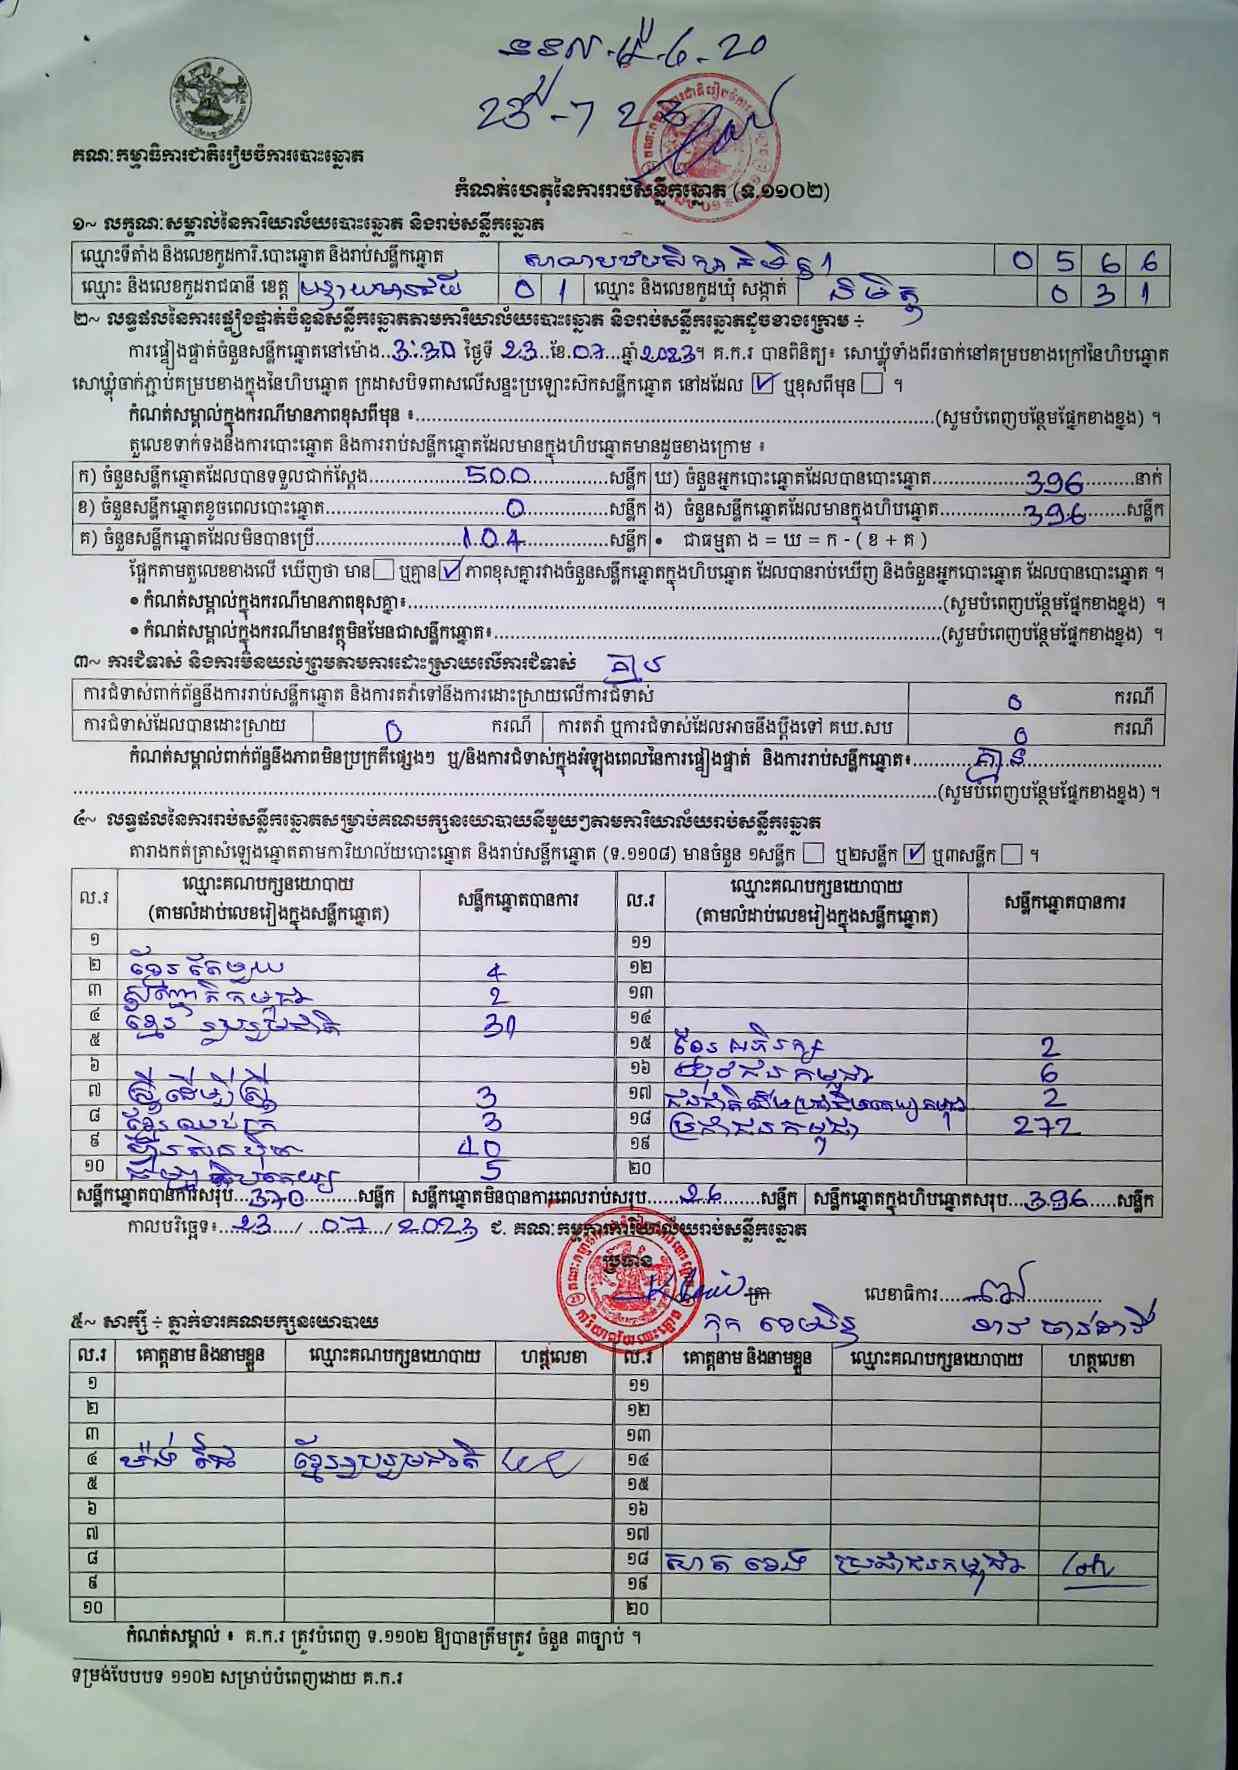 ទទួល ម៉ 6.20
23 -7 23
គណៈកម្មាធិការជាតិរៀបចំការបោះឆ្នោត
កំណត់ហេតុនៃការរាប់សន្លឹកឆ្នោត (ទ.១១០២)
១~ លក្ខណៈសម្គាល់នៃការិយាល័យបោះឆ្នោត និងរាប់សន្លឹកឆ្នោត
ឈ្មោះទីតាំង និងលេខកូដការិ.បោះឆ្នោត និងរាប់សន្លឹកឆ្នោត សាលាបឋមសិក្សានិមិត្ត1 0 5 6 6
ឈ្មោះ និងលេខកូដរាជធានី ខេត្ត បន្ទាយមានជ័យ 0 1 ឈ្មោះ និងលេខកូដឃុំ សង្កាត់ និមិត្ត 0 3 1
២~ លទ្ធផលនៃការផ្ទៀងផ្ទាត់ចំនួនសន្លឹកឆ្នោតតាមការិយាល័យបោះឆ្នោត និងរាប់សន្លឹកឆ្នោតដូចខាងក្រោម ÷
ការផ្ទៀងផ្ទាត់ចំនួនសន្លឹកឆ្នោតនៅម៉ោង..3:30 ថ្ងៃទី 23..ខែ.07..ឆ្នាំ2023។ គ.ក.រ បានពិនិត្យ៖ សោឃ្លុំទាំងពីរចាក់នៅគម្របខាងក្រៅនៃហិបឆ្នោត
សោឃ្លុំចាក់ភ្ជាប់គម្របខាងក្នុងនៃហិបឆ្នោត ក្រដាសបិទពាសលើសន្ទះប្រឡោះស៊កសន្លឹកឆ្នោត នៅដដែល ☑ ឬខុសពីមុន ☐ ។
កំណត់សម្គាល់ក្នុងករណីមានភាពខុសពីមុន ៖..........(សូមបំពេញបន្ថែមផ្នែកខាងខ្នង) ។
តួលេខទាក់ទងនឹងការបោះឆ្នោត និងការរាប់សន្លឹកឆ្នោតដែលមានក្នុងហិបឆ្នោតមានដូចខាងក្រោម ៖
ក) ចំនួនសន្លឹកឆ្នោតដែលបានទទួលជាក់ស្តែង..........500..........សន្លឹក ឃ) ចំនួនអ្នកបោះឆ្នោតដែលបានបោះឆ្នោត..........396..........នាក់
ខ) ចំនួនសន្លឹកឆ្នោតខូចពេលបោះឆ្នោត..........0..........សន្លឹក ង) ចំនួនសន្លឹកឆ្នោតដែលមានក្នុងហិបឆ្នោត..........396..........សន្លឹក
គ) ចំនួនសន្លឹកឆ្នោតដែលមិនបានប្រើ..........104..........សន្លឹក • ជាធម្មតា ង = ឃ = ក - ( ខ + គ )
ផ្អែកតាមតួលេខខាងលើ ឃើញថា មាន☐ ឬគ្មាន☑ ភាពខុសគ្នារវាងចំនួនសន្លឹកឆ្នោតក្នុងហិបឆ្នោត ដែលបានរាប់ឃើញ និងចំនួនអ្នកបោះឆ្នោត ដែលបានបោះឆ្នោត ។
• កំណត់សម្គាល់ក្នុងករណីមានភាពខុសគ្នា៖..........(សូមបំពេញបន្ថែមផ្នែកខាងខ្នង) ។
• កំណត់សម្គាល់ក្នុងករណីមានវត្ថុមិនមែនជាសន្លឹកឆ្នោត៖..........(សូមបំពេញបន្ថែមផ្នែកខាងខ្នង) ។
៣~ ការជំទាស់ និងការមិនយល់ព្រមតាមការដោះស្រាយលើការជំទាស់ គ្មាន
ការជំទាស់ពាក់ព័ន្ធនឹងការរាប់សន្លឹកឆ្នោត និងការតវ៉ាទៅនឹងការដោះស្រាយលើការជំទាស់ 0 ករណី
ការជំទាស់ដែលបានដោះស្រាយ 0 ករណី ការតវ៉ា ឬការជំទាស់ដែលអាចនឹងប្តឹងទៅ គឃ.សប 0 ករណី
កំណត់សម្គាល់ពាក់ព័ន្ធនឹងភាពមិនប្រក្រតីផ្សេងៗ ឬ/និងការជំទាស់ក្នុងអំឡុងពេលនៃការផ្ទៀងផ្ទាត់ និងការរាប់សន្លឹកឆ្នោត៖..........គ្មាន..........
..........(សូមបំពេញបន្ថែមផ្នែកខាងខ្នង) ។
៤~ លទ្ធផលនៃការរាប់សន្លឹកឆ្នោតសម្រាប់គណបក្សនយោបាយនីមួយៗតាមការិយាល័យរាប់សន្លឹកឆ្នោត
តារាងកត់ត្រាសំឡេងឆ្នោតតាមការិយាល័យបោះឆ្នោត និងរាប់សន្លឹកឆ្នោត (ទ.១១០៨) មានចំនួន ១សន្លឹក ☐ ឬ២សន្លឹក ☑ ឬ៣សន្លឹក ☐ ។
ល.រ ឈ្មោះគណបក្សនយោបាយ (តាមលំដាប់លេខរៀងក្នុងសន្លឹកឆ្នោត) សន្លឹកឆ្នោតបានការ ល.រ ឈ្មោះគណបក្សនយោបាយ (តាមលំដាប់លេខរៀងក្នុងសន្លឹកឆ្នោត) សន្លឹកឆ្នោតបានការ
១ ១១
២ ខ្មែរតែមួយ 4 ១២
៣ ស្រឡាញ់ជាតិកម្ពុជា 2 ១៣
៤ ខ្មែររួបរួមជាតិ 31 ១៤
៥ ១៥ ខ្មែរអភិរក្ស 2
៦ ១៦ យុវជនកម្ពុជា 6
៧ ស្ត្រីដើម្បីស្ត្រី 3 ១៧ ជនជាតិដើមប្រជាធិបតេយ្យកម្ពុជា 2
៨ ខ្មែរឈប់ក្រ 3 ១៨ ប្រជាជនកម្ពុជា 272
៩ ហ៊្វុនស៊ិនប៉ិច 40 ១៩
១០ ធិបតេយ្យ 5 ២០
សន្លឹកឆ្នោតបានការសរុប...370..........សន្លឹក សន្លឹកឆ្នោតមិនបានការពេលរាប់សរុប......26.......សន្លឹក សន្លឹកឆ្នោតក្នុងហិបឆ្នោតសរុប...396......សន្លឹក
កាលបរិច្ឆេទ៖...23..../...07..../.2023 ជ. គណៈកម្មការការិយាល័យរាប់សន្លឹកឆ្នោត
ប្រធាន
ត្រា លេខាធិការ..........
៥~ សាក្សី ÷ ភ្នាក់ងារគណបក្សនយោបាយ
ល.រ គោត្តនាម និងនាមខ្លួន ឈ្មោះគណបក្សនយោបាយ ហត្ថលេខា ល.រ គោត្តនាម និងនាមខ្លួន ឈ្មោះគណបក្សនយោបាយ ហត្ថលេខា
១ ១១
២ ១២
៣ ១៣
៤ ខ្មែររួបរួមជាតិ ១៤
៥ ១៥
៦ ១៦
៧ ១៧
៨ ១៨ សាត ខេង ប្រជាជនកម្ពុជា
៩ ១៩
១០ ២០
កំណត់សម្គាល់ ៖ គ.ក.រ ត្រូវបំពេញ ទ.១១០២ ឱ្យបានត្រឹមត្រូវ ចំនួន ៣ច្បាប់ ។
ទម្រង់បែបបទ ១១០២ សម្រាប់បំពេញដោយ គ.ក.រ